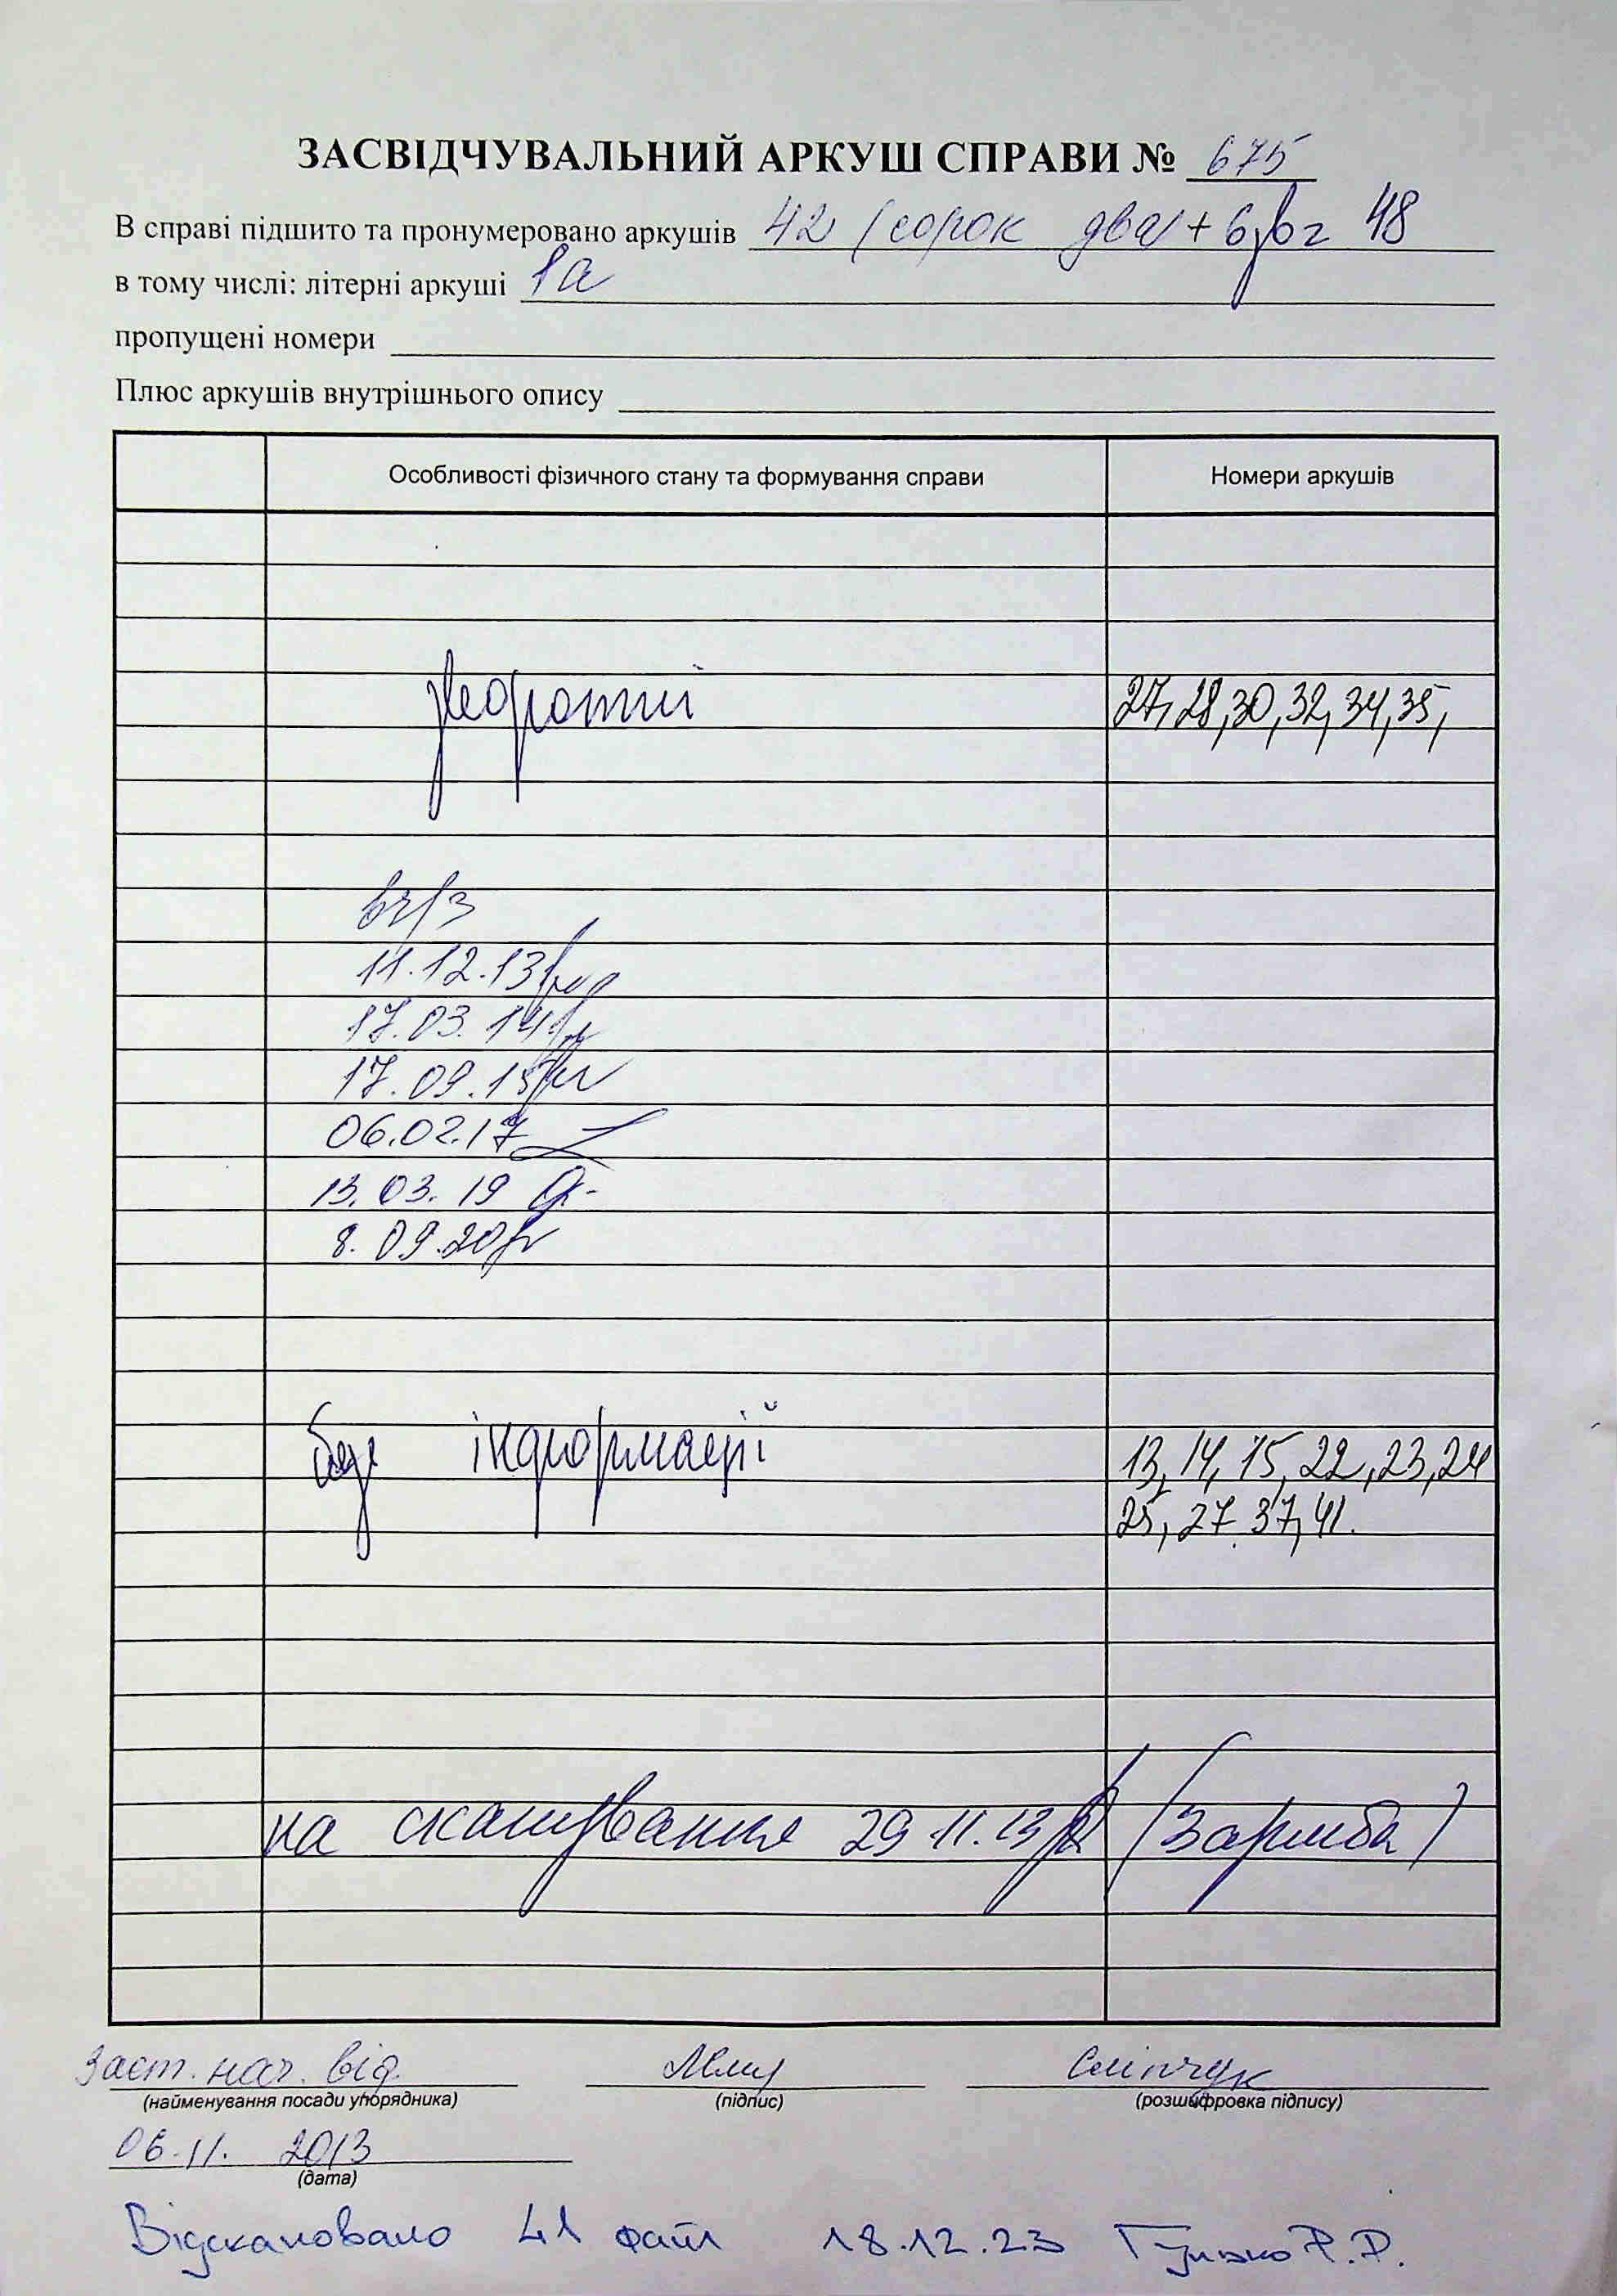 ЗАСВІДЧУВАЛЬНИЙ АРКУШ СПРАВИ № 675
В справі підшито та пронумеровано аркушів 42 (сорок два) + 6 48
в тому числі: літерні аркуші 1а
пропущені номери
Плюс аркушів внутрішнього опису
Особливості фізичного стану та формування справи Номери аркушів
27, 28, 30, 32, 34, 35,
11.12.13
17.03.14
17.09.15
06.02.17
13.03.19
8.09.20
без інформації 13, 14, 15, 22, 23, 24
25, 27, 37, 41.
на сканування 29.11.13 (Заремба)
Заст. нач. від. Сліпчук
(найменування посади упорядника) (підпис) (розшифровка підпису)
06.11. 2013
(дата)
Відскановано 41 файл 18.12.23 Р.Р.